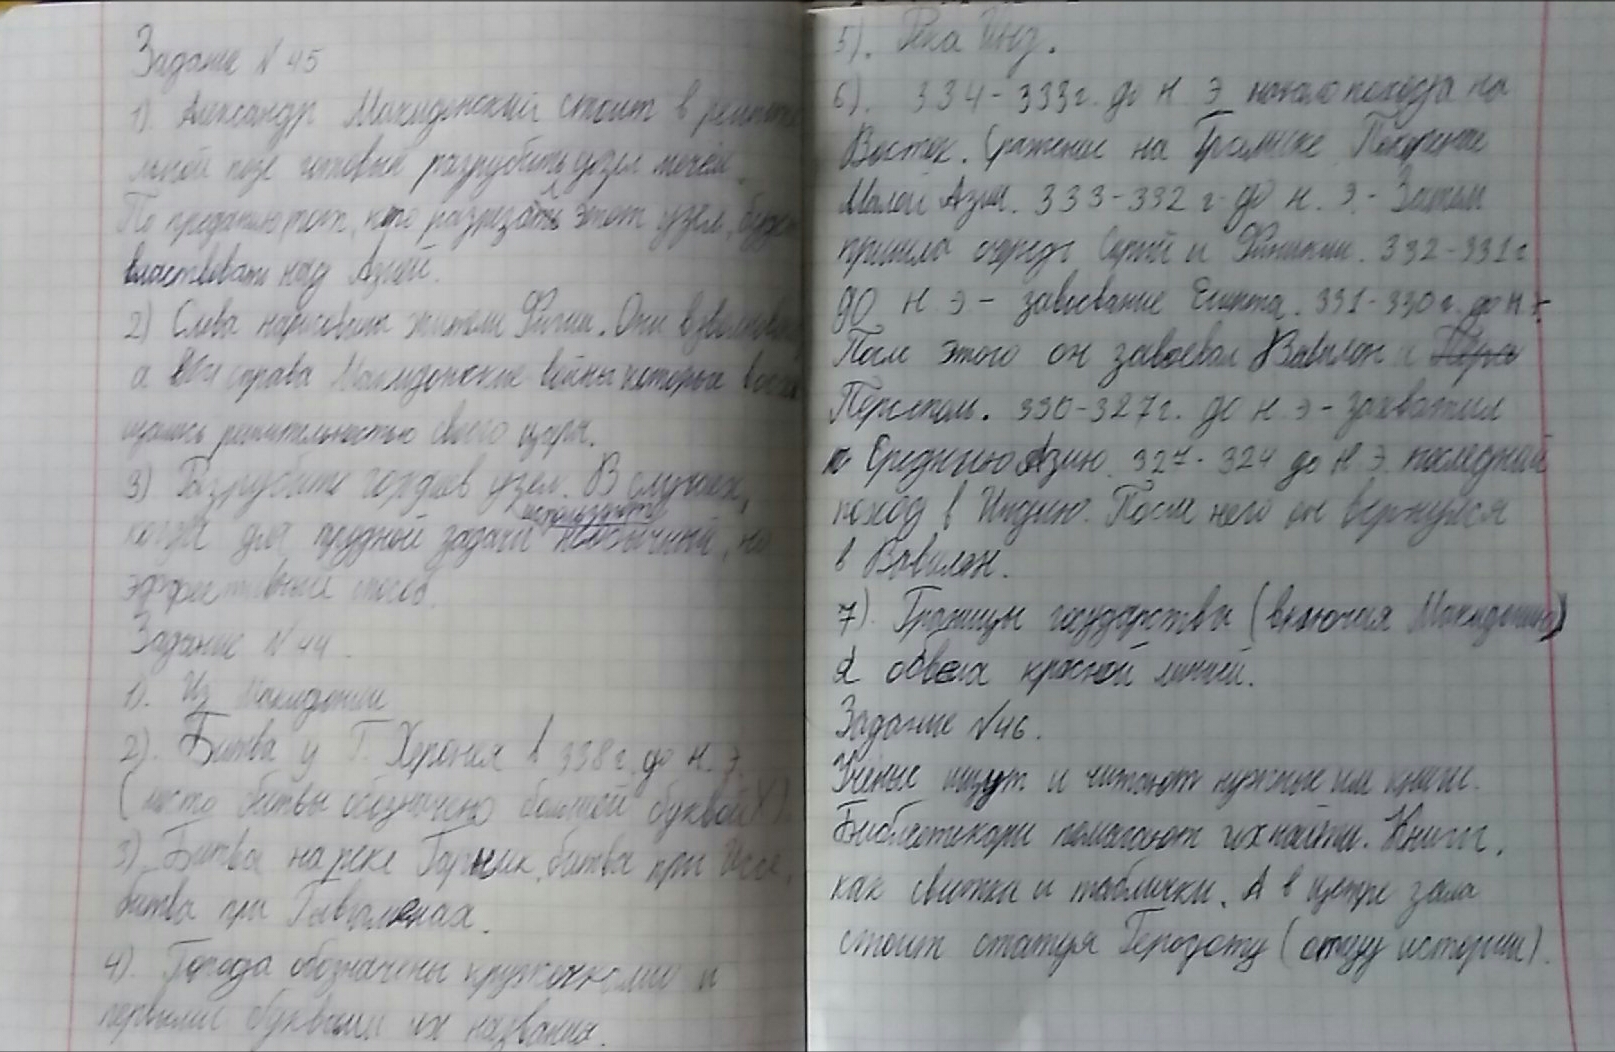 Задание N 45
1) Александр Макидонский стоит в решите
льной позе готовый разрубить узел мечём.
По преданию, тот, кто разрезать этот узел, будет
властвовать над Азией.
2) Слева нарисованы жители Фригии. Они взволнованы
а справа Макидонские войны которые восхи
щаясь решительностью своего царя.
3) Разрубите гордиев узел. В случаях,
используют
когда для трудной задачи необычный, но
эффективный способ.
Задание N 44.
1). Из Макидонии
2). Битва у Г. Херонея в 338 г. до н. э.
(место битвы обозначено большой буквой X).
3) Битва на реке Граник, битва при Иссе,
битва при Гавгамелах.
4). Города обозначены кружочками и
первыми буквами их названия.
5). Река Инд.
6). 334-333 г. до н э начало похода на
Восток. Сражение на Гранике. Покорение
Малой Азии. 333-332 г. до н. э. - Затем
пришла очередь Сирии и Финикии. 332-331 г
до н э - завоевание Египта. 331-330 г. до н. э
После этого он завоевал Вавилон и
Персеполь. 330-327 г. до н. э - захватил
Среднюю Азию. 327-324 до н. э. последний
поход в Индию. После него он вернулся
в Вавилон.
7). Границы государства (включая Макидонию)
я обвела красной линией.
Задание N 46.
Учёные ищут и читают нужные им книги.
Библиотекари помагают их найти. Книги,
как свитки и таблички. А в центре зала
стоит статуя Геродоту (отцу истории).